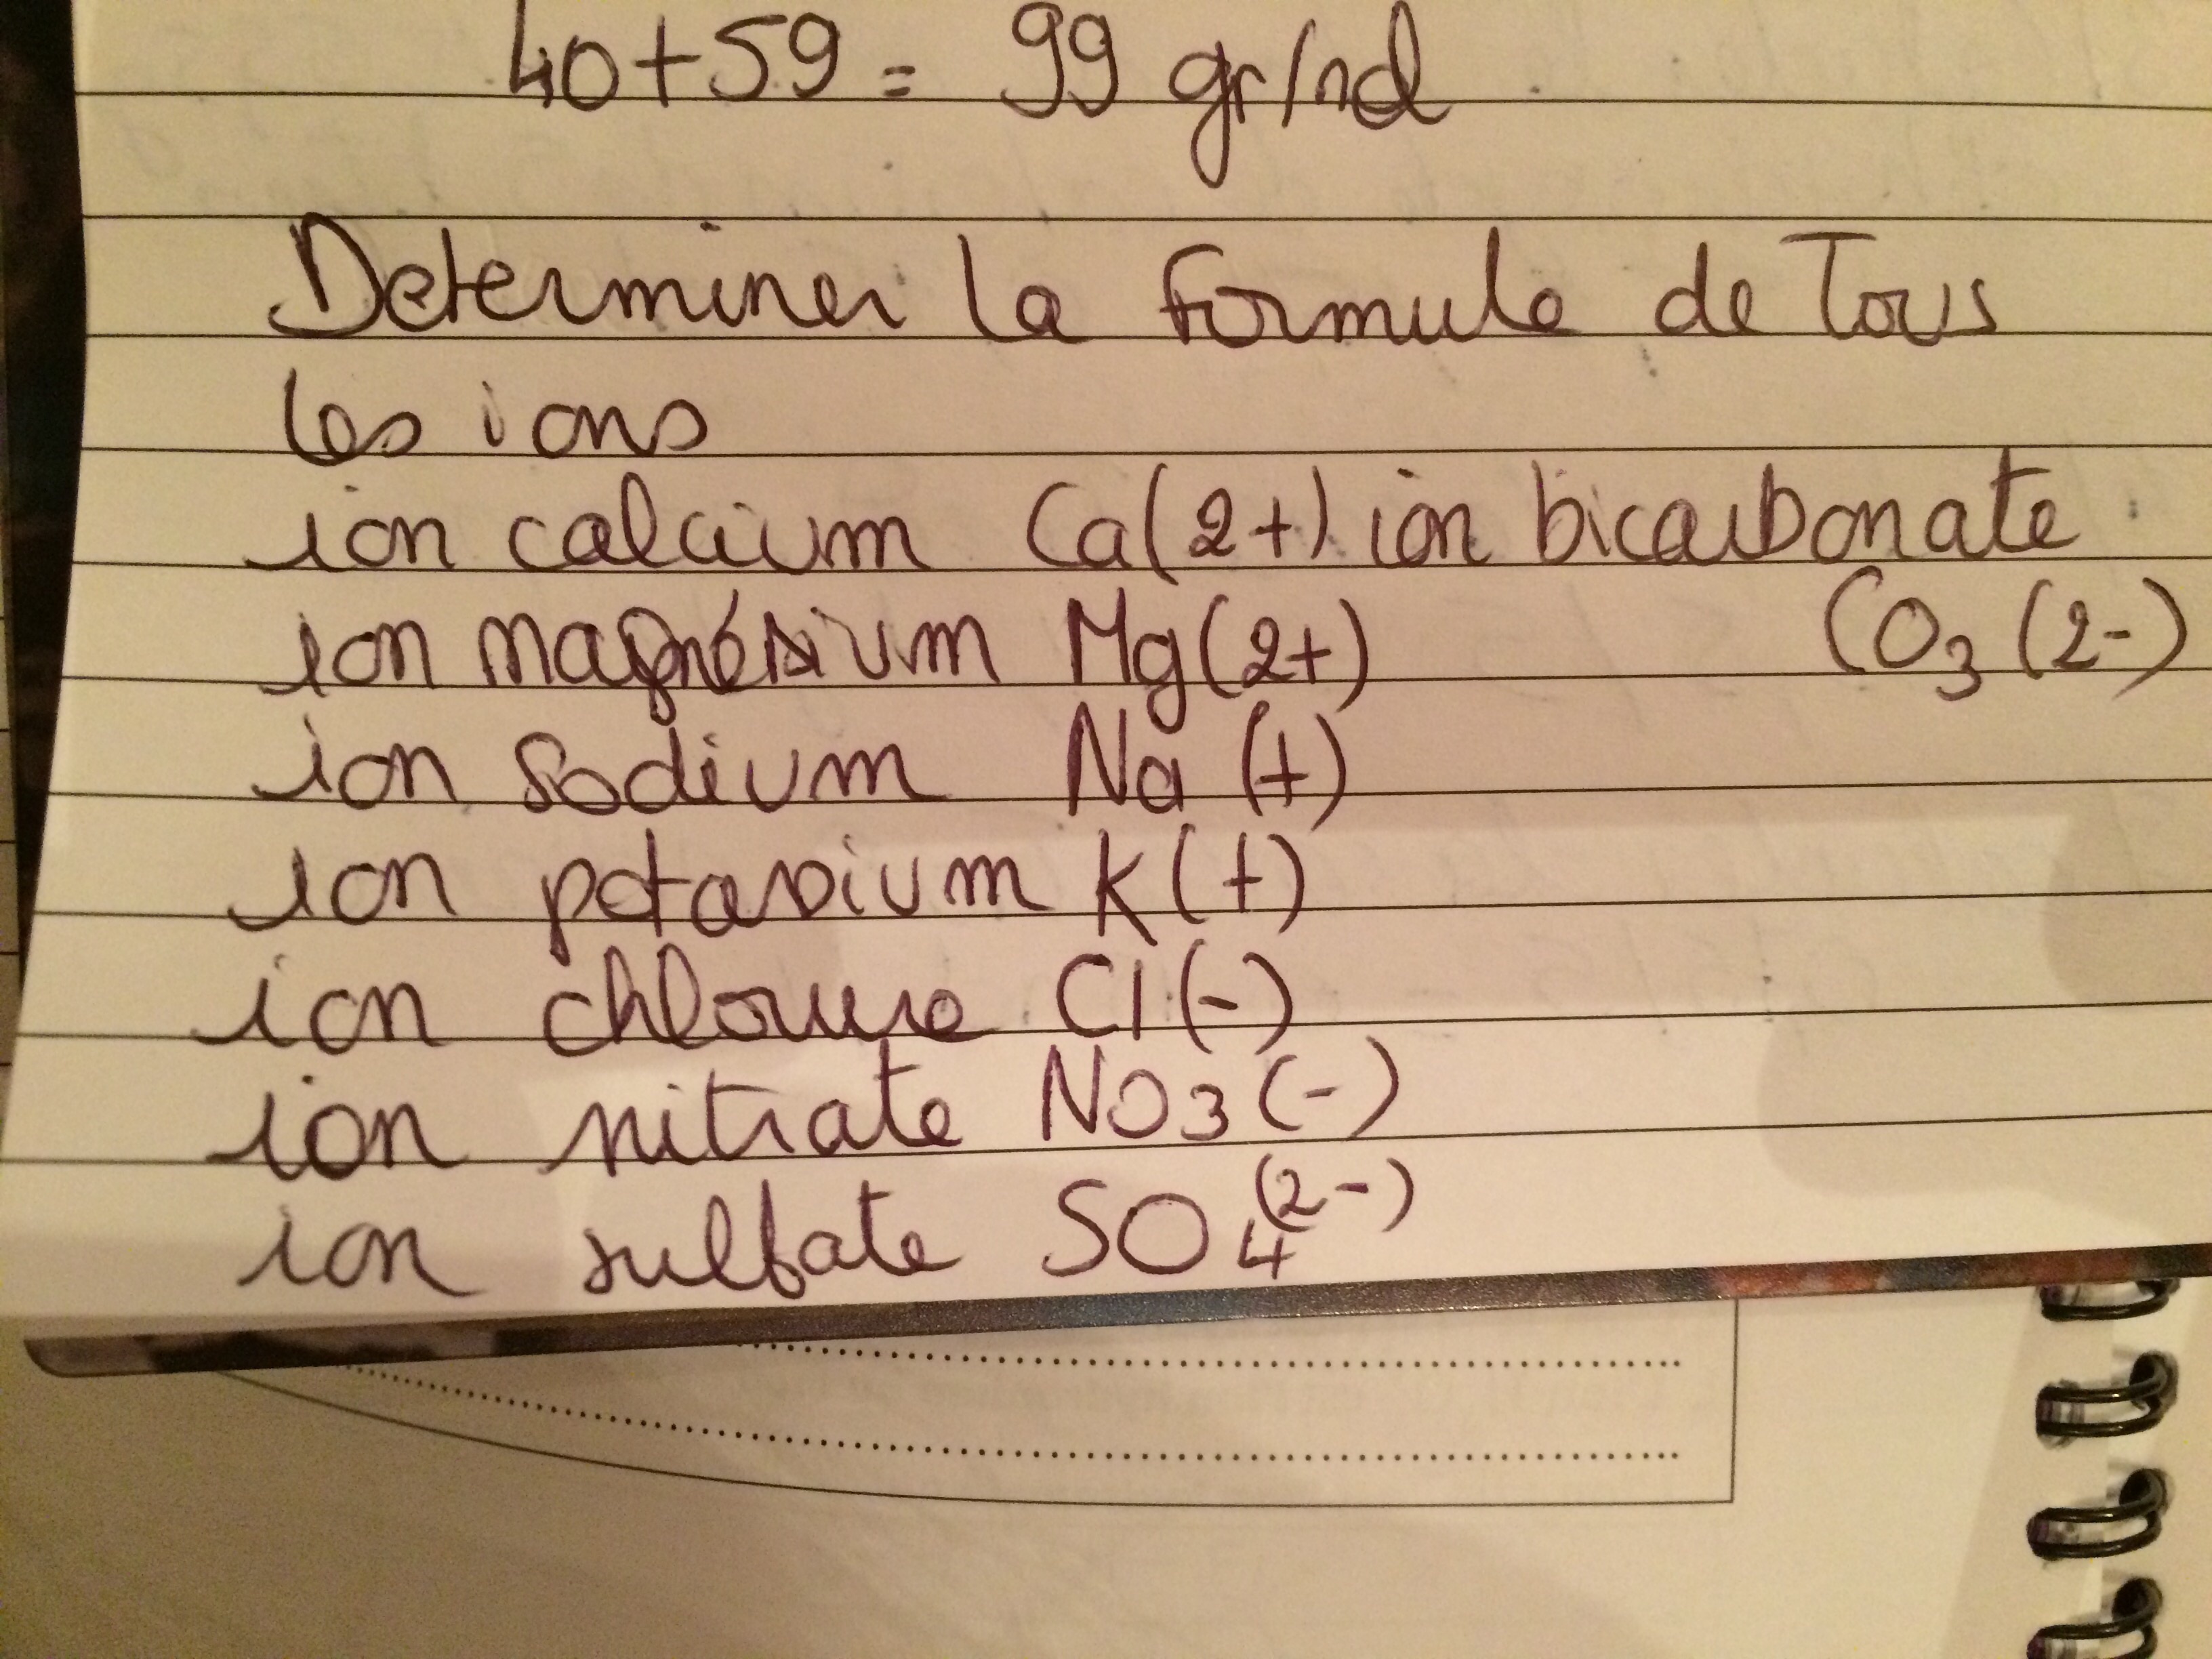 40+59 = 99 gr/nd
Determiner la formule de Tous
les ions
ion calcium Ca(2+) ion bicarbonate
ion magnésium Mg(2+) CO3 (2-)
ion sodium Na (+)
ion potassium K(+)
ion chlorure Cl(-)
ion nitrate NO3(-)
ion sulfate SO4(2-)